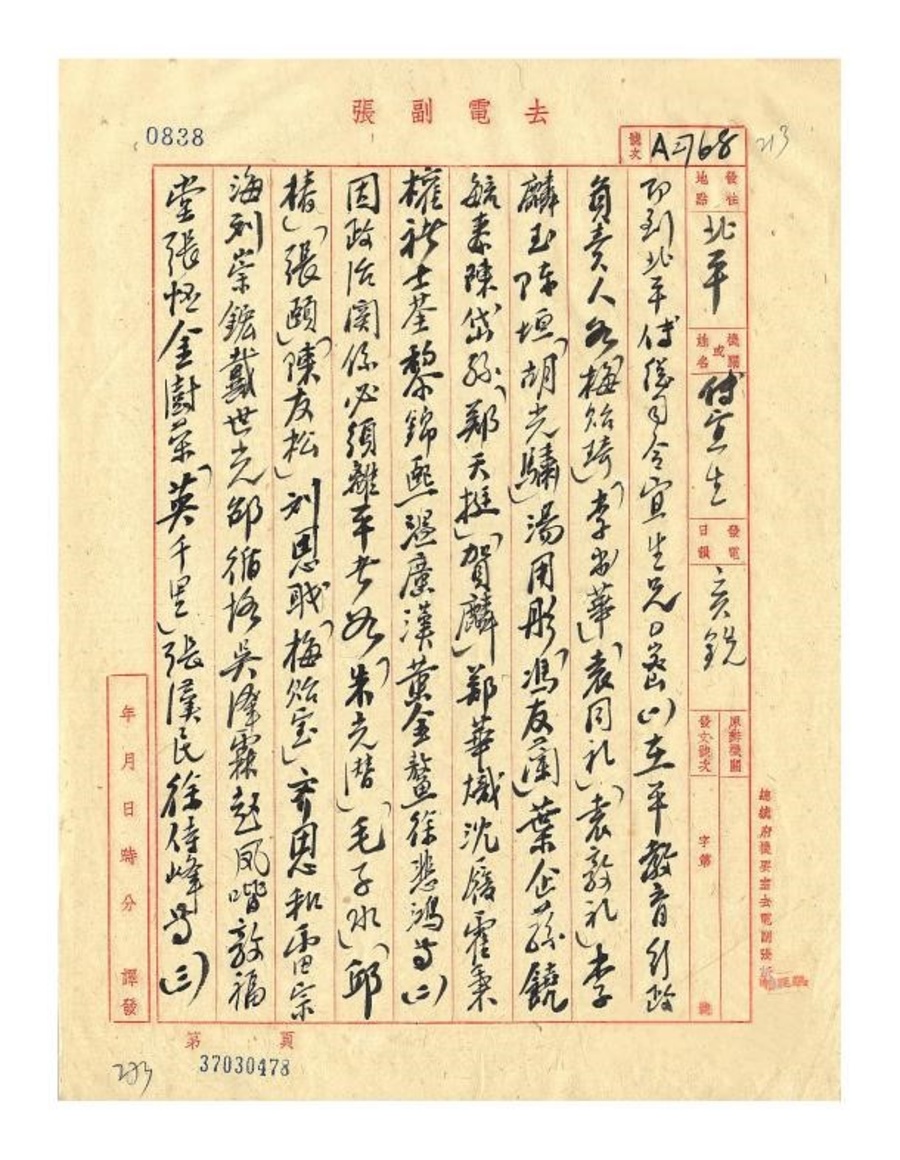 去電副張
0838
號次
A 768
213
發往地點
北平
機關或姓名
傅宣生
發電日韻
亥銑
原辦機關
發文號次
字第
號
即到北平傅總司令宜生兄○密(一)在平教育行政
負責人如梅貽琦「李書華」「袁同礼」「袁敦礼」李
麟玉陳垣「胡先驌」湯用彤「馮友蘭」葉企孫饒
毓泰陳岱孫「鄭天挺」「賀麟」鄭華熾沈履霍秉
權褚士荃黎錦熙溫廣漢黃金鰲徐悲鴻等(二)
因政治關係必須離平者如「朱光潛」「毛子水」「邱
椿」「張頤」「陳友松」刘思職「梅貽宝」齊思和雷宗
海刘崇鋐戴世光邵循恪吳澤霖趙鳳喈敦福
堂張恆金澍榮「英千里」張漢民徐侍峰等(三)
年月日時分 譯發
第 頁
37030478
213